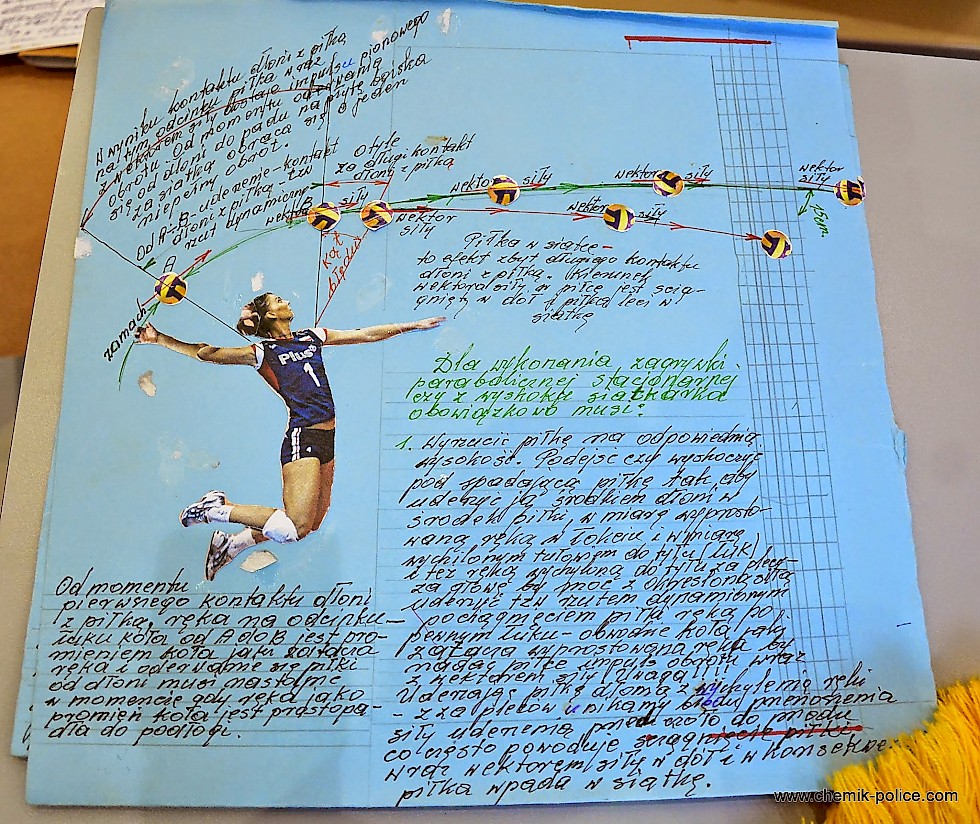 W wyniku kontaktu dłoni z piłką
na tym odcinku piłka wraz
z wektorem siły dostaje impuls pionowego
obrotu. Od momentu oderwania
się od dłoni do padu na płytę boiska
za siatką obraca się o jeden
niepełny obrót.
Od A-B-uderzenie-kontakt
dłoni z piłką-tzw
rzut dynamiczny
O tyle
za długi kontakt
dłoni z piłką
wektor
siły
wektor
siły
wektor
siły
wektor
siły
wektor
siły
wektor
siły
15cm
A
B
zamach
kąt
błędu
Piłka w siatce-
to efekt zbyt długiego kontaktu
dłoni z piłką. Kierunek
wektora siły w piłce jest ścią-
gnięty w dół i piłka leci w
siatkę
Pluss
1
Dla wykonania zagrywki
parabolicznej stacjonarnej
czy z wyskoku siatkarka
obowiązkowo musi:
1. Wyrzucić piłkę na odpowiednią
wysokość. Podejść czy wyskoczyć
pod spadającą piłkę tak, aby
uderzyć ją środkiem dłoni w
środek piłki, w miarę wyprosto-
waną ręką w łokciu i w miarę
wychylonym tułowiem do tyłu (łuk)
i też ręką wychyloną do tyłu za plecy-
za głowę by móc z określoną siłą
uderzyć tzw rzutem dynamicznym
- pociągnięciem piłki ręką po
pewnym łuku- obwodzie koła jaki
zatacza wyprostowana ręka by
nadać piłce impuls obrotu wraz
z wektorem siły. Uwaga!!
Uderzając piłkę dłonią z wychylenia ręki
- zza pleców unikamy błędu przenoszenia
siły uderzenia przed czoło do przodu
co często powoduje ściągnięcie piłki
wraz wektorem siły w dół i w konsekwe.
piłka wpada w siatkę.
Od momentu
pierwszego kontaktu dłoni
z piłką, ręka na odcinku-
łuku koła od A do B jest pro-
mieniem koła jaki zatacza
ręka i oderwanie się piłki
od dłoni musi nastąpić
w momencie gdy ręka jako
promień koła jest prostopa-
dła do podłogi.
www.chemik-police.com